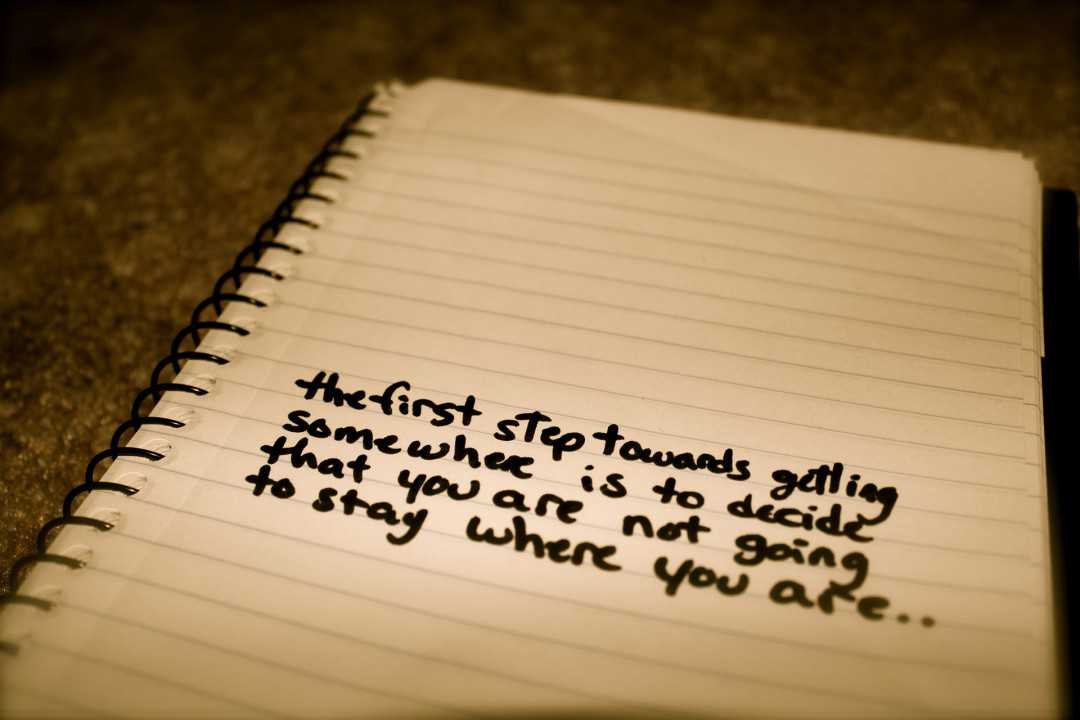 the first step towards getting
somewhere is to decide
that you are not going
to stay where you are..